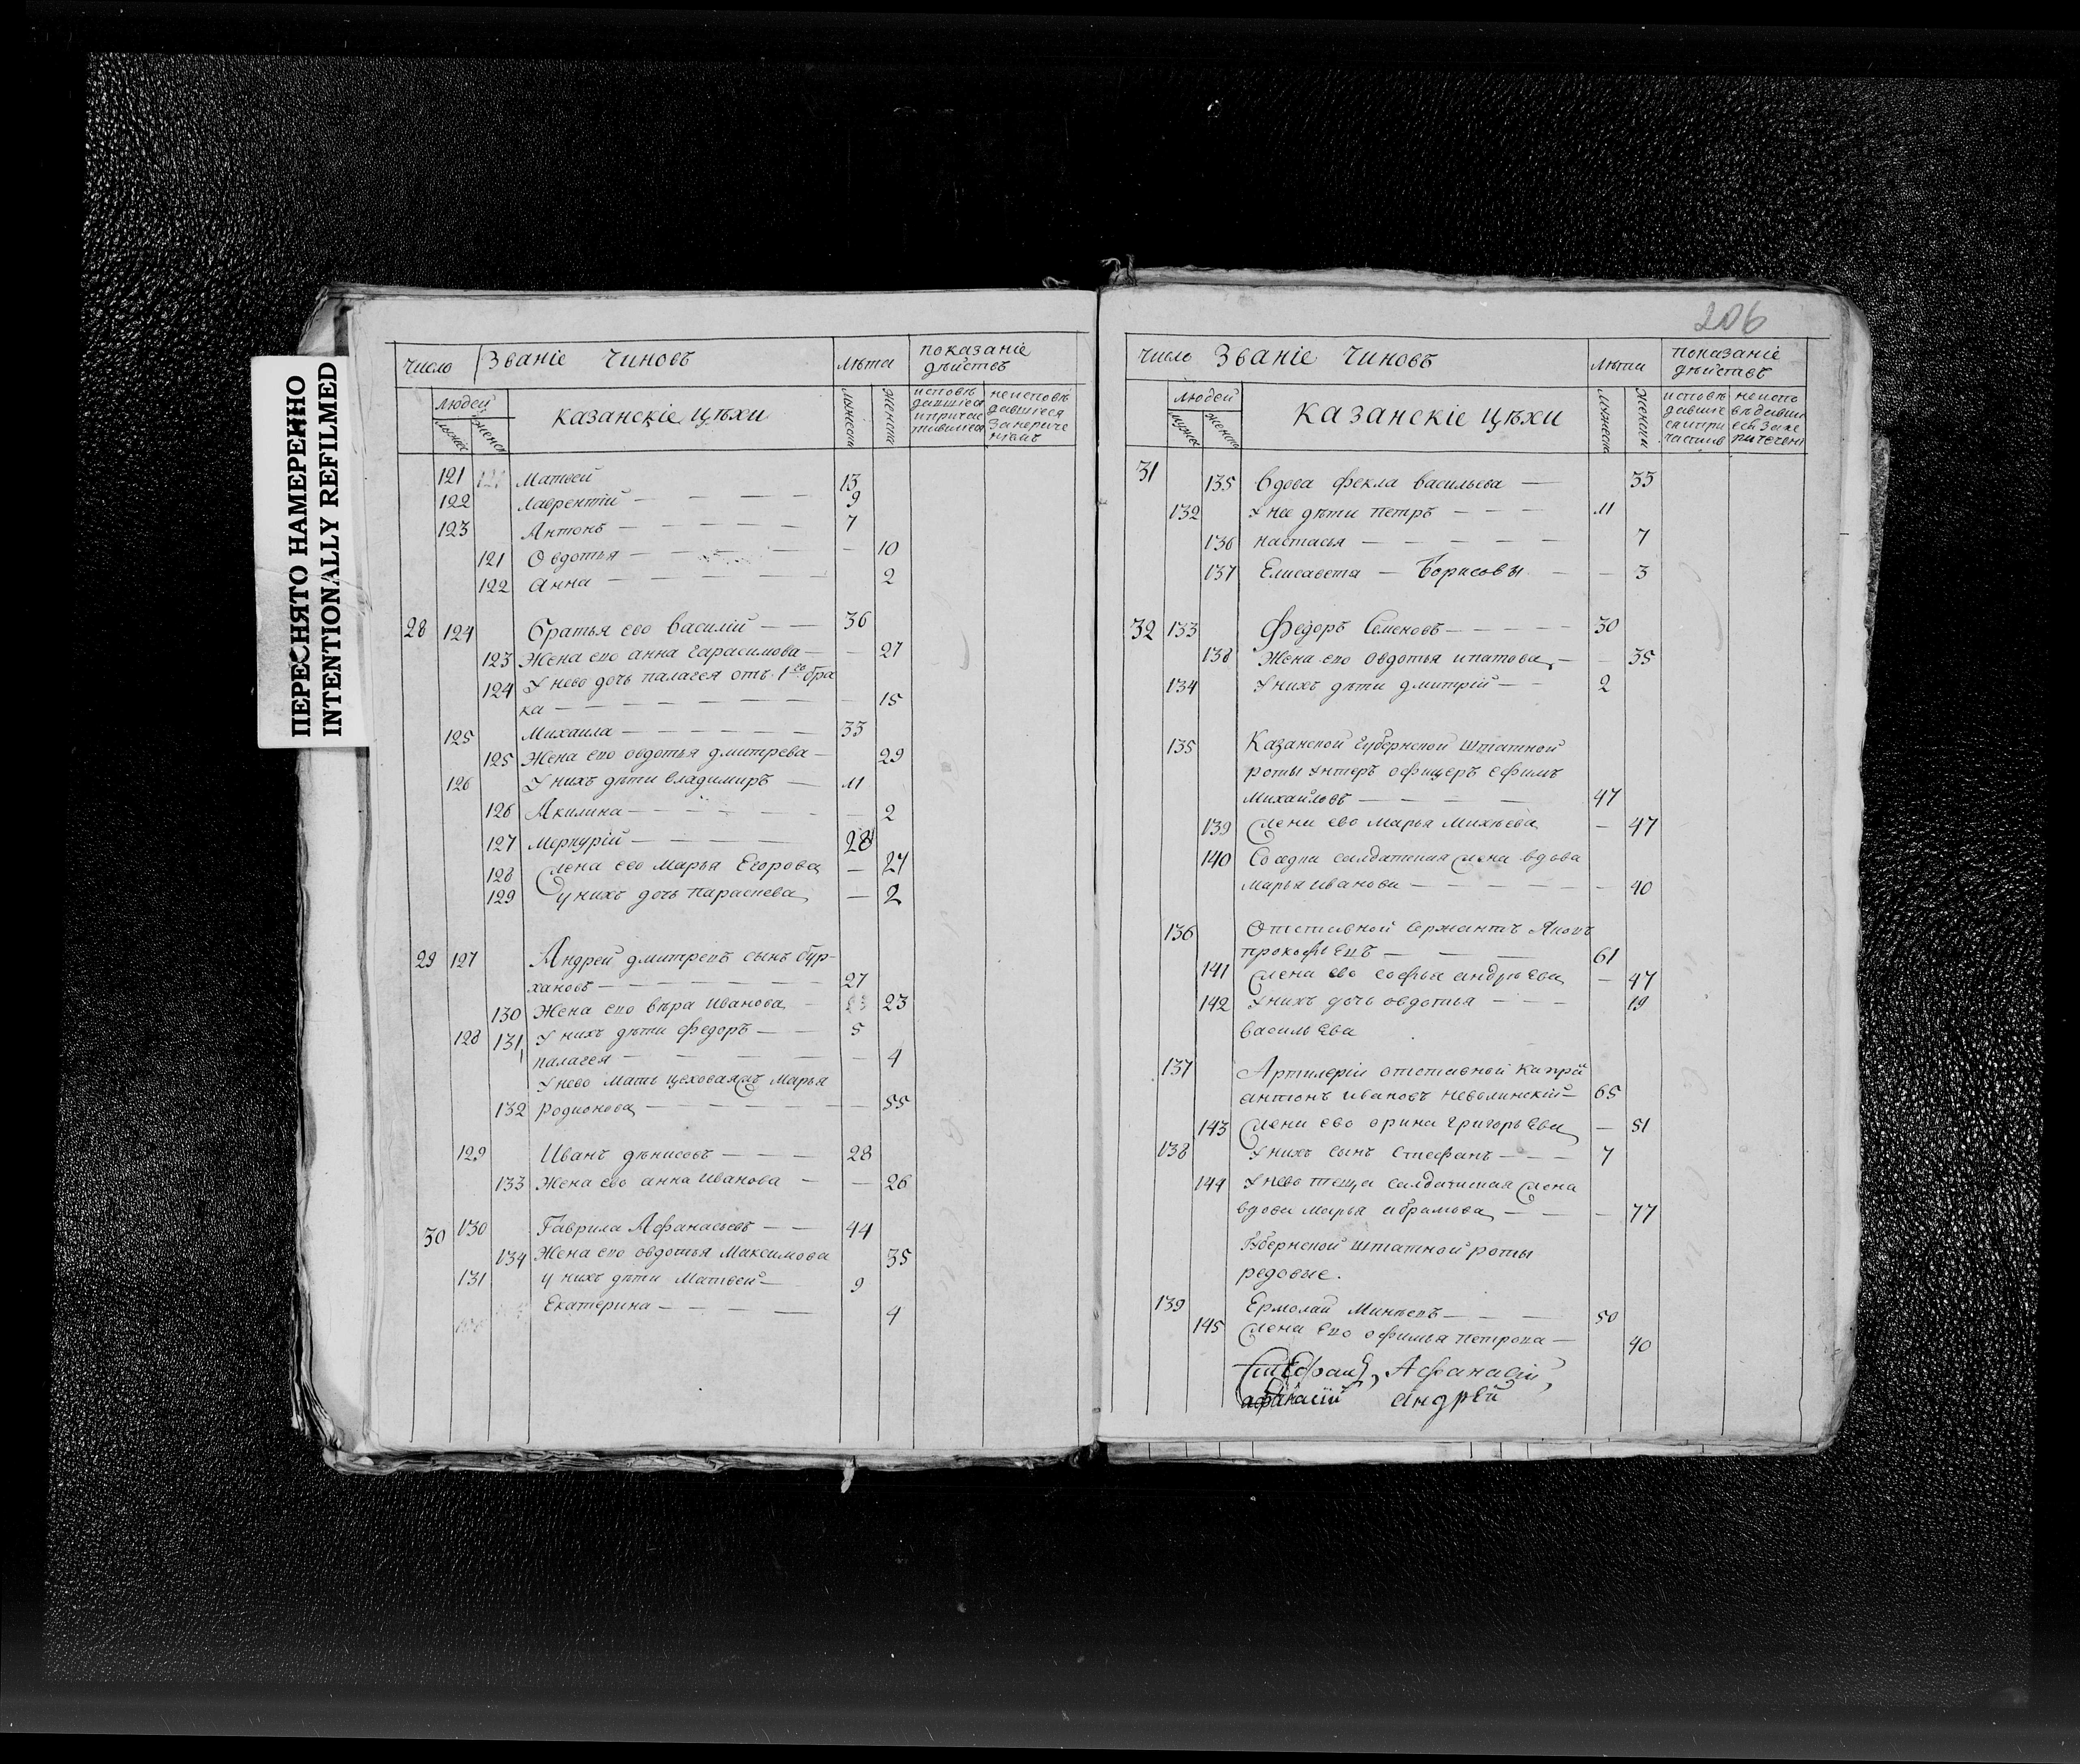 ПЕРЕСНЯТО НАМЕРЕННО
INTENTIONALLY REFILMED
число Званіе чиновъ лѣта показаніе дѣйствъ
людей
мужес женск
казанскіе цѣхи
мужеска женска
исповѣдавшіеся и причастившіеся
неисповѣдавшіеся
121 Матвей 13
122 Лаврентій — 9
123 Антонъ — 7
121 Овдотья — 10
122 Анна — 2
28 124 Братья ево Василій — 36
123 Жена ево анна Гарасимова — 27
124 У нево дочь палагея отъ 1го бра
ка — 15
125 Михаила — 33
125 Жена ево овдотья дмитрева — 29
126 У нихъ дѣти владимиръ — 11
126 Акилина — 2
127 Меркурій — 28
128 Жена ево Марья Егорова — 27
129 у нихъ дочь парасиева — 2
29 127 Андрей дмитревъ сынъ бур-
хановъ — 27
130 Жена ево вѣра Иванова — 23
128 131 У нихъ дѣти федоръ — 5
палагея — 4
У нево мать цеховая Марья
132 родионова — 55
129 Иванъ денисовъ — 28
133 Жена ево анна иванова — 26
30 130 Гаврила Афанасьевъ — 44
134 Жена ево овдотья Максимова 35
131 у нихъ дѣти Матвей — 9
Екатерина — 4
206
число Званіе чиновъ лѣта показаніе дѣйствъ
людей
мужес женск
казанскіе цѣхи
мужеска женска
31 135 Вдова фекла васильева — 33
132 У нее дѣти петръ — 11
136 настасья — 7
137 Елисавета — Борисовы — 3
32 133 Федоръ Семеновъ — 30
138 Жена ево Овдотья ипатова — 35
134 У нихъ дѣти дмитрій — 2
135 Казанской губернской штатной
роты унтеръ офицеръ ефимъ
михайловъ — 47
139 Жена ево марья михѣева — 47
140 Соседка салдатская жена вдова
марья иванова — 40
136 Отставной сержантъ Яковъ
прокофьевъ — 61
141 Жена ево софья андрѣева — 47
142 У нихъ дочь овдотья — 19
васильева
137 Артилеріи отставной
антонъ ивановъ неволинскій — 65
143 Жена ево орина григорьева — 51
138 У нихъ сынъ стефанъ — 7
144 У нево теща салдатская жена
вдова марья абрамова — 77
Губернской штатной роты
редовые.
139 Ермолай Минѣевъ — 50
145 Жена ево офимья петрова — 40
Стефанъ, Афанасій,
афанасій андрей